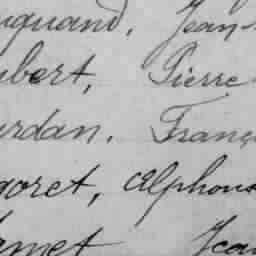 quand, Jean-
bert, Pierre
rdan, Franç
goret, Alphons
met Jea